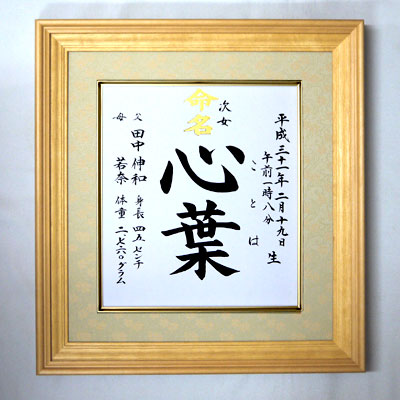 平成三十一年二月十九日
午前一時八分
生
次女
ことは
命名
心葉
父 田中 伸和
母 若奈
身長 四五センチ
体重 二、七六〇グラム